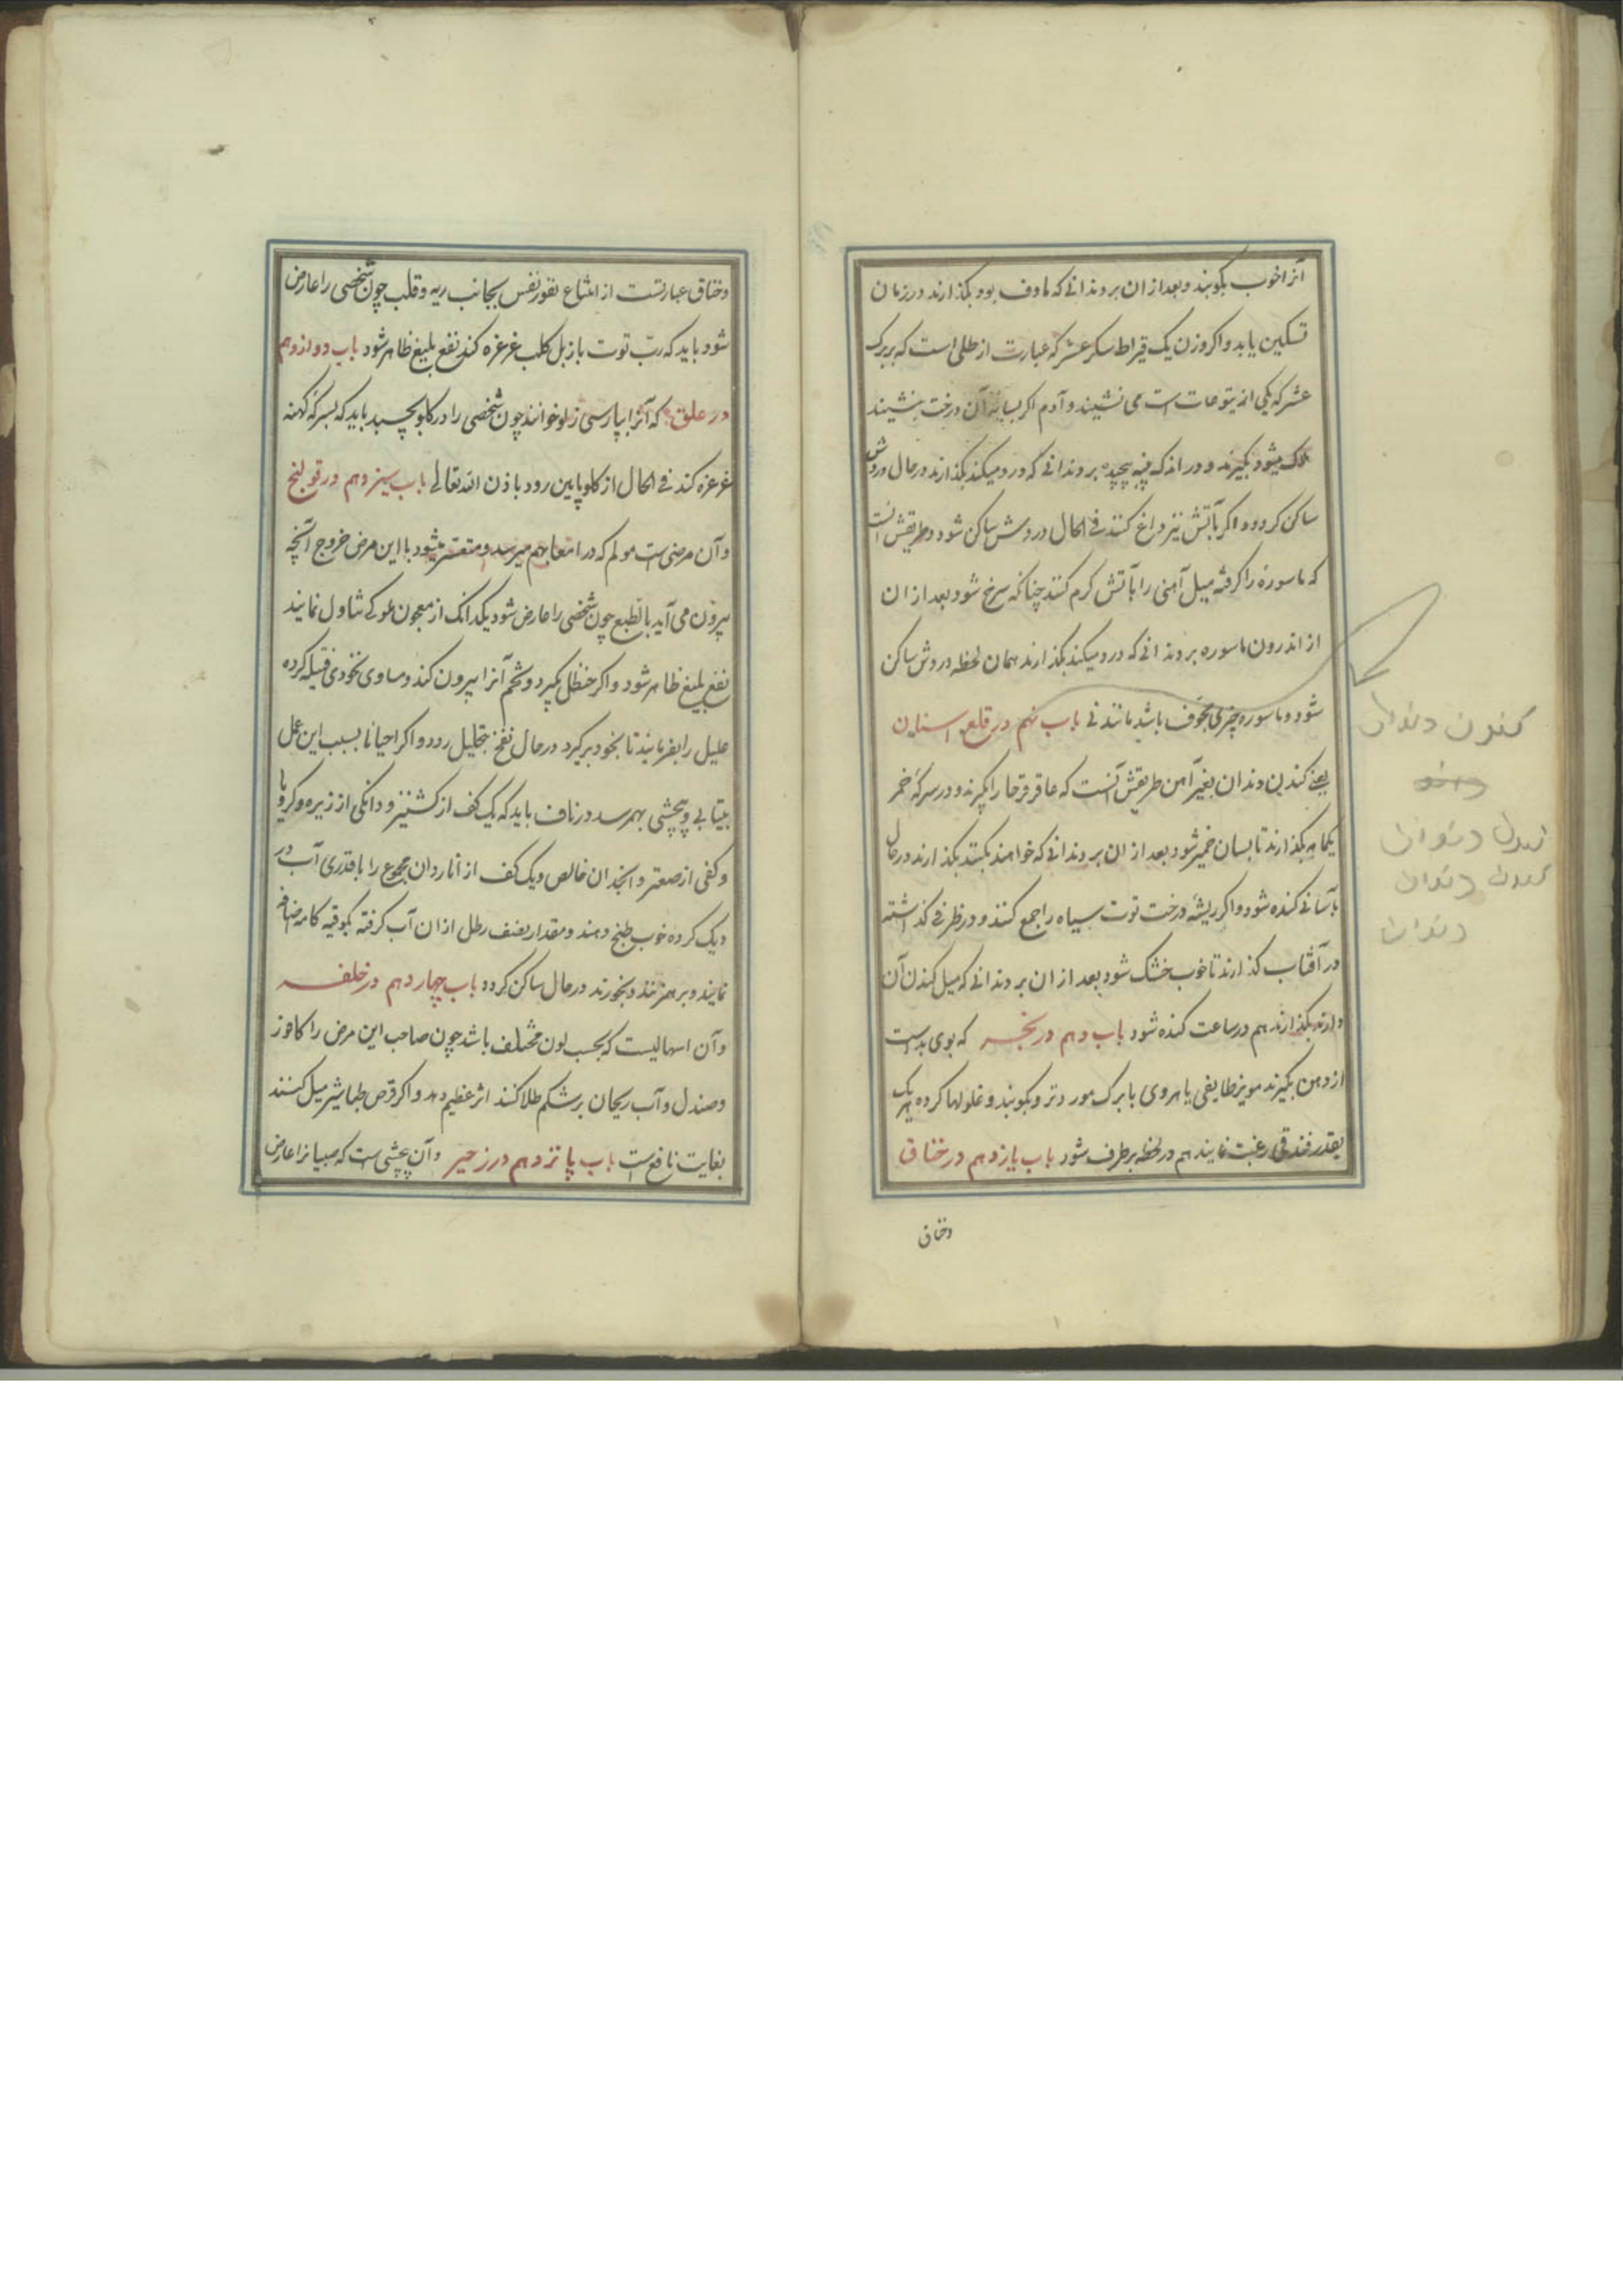 آنرا خوب بکوبند و بعد از ان بر دندانی که ماوف بود بکذارند در زمان
تسکین یابد و اکر وزن یک قیراط سکر عشر که عبارت از طلی است که بر برک
عشر که یکی از یتوعات است می نشیند و آدم اکر بسایه آن درخت بنشیند
هلاک میشود بکیرند و در اندکه پنبه پیچیده بر دندانی که درد میکند بکذارند در حال دردش
ساکن کردد و اکر بآتش نیز داغ کنند فی الحال دردش ساکن شود و طریقش انست
که ماسوره را کرفته میل آهنی را بآتش کرم کنند چنانکه سرخ شود بعد از ان
از اندرون ماسوره بر دندانی که درد میکند بکذارند همان لحظه دردش ساکن
شود و ماسوره چیزی مجوف باشد مانند نی باب نهم در قلع اسنان
یعنی کندن دندان بغیر آهن طریقش آنست که عاقرقرحا را بکیرند و در سرکهٔ خمر
یکماه بکذارند تا بسان خمیر شود بعد از ان بر دندانی که خواهند بکنند بکذارند در حال
بآسانی کنده شود و اکر ریشهٔ درخت توت سیاه را جمع کنند و در ظرفی کذاشته
در آفتاب کذارند تا خوب خشک شود بعد از ان بر دندانی که میل کندن آن
دارند بکذارند هم در ساعت کنده شود باب دهم در بخر که بوی بد است
از دهن بکیرند مویز طایفی یا هروی با برک مورد تر و بکوبند و غلولها کرده هر یک
بقدر فندقی رغبت نمایند هم در لحظه بر طرف شود باب یازدهم در خناق
وخناق
کندن دندان
دندان
کندن دندان
دندان
وخناق عبارتست از امتناع نفوذ نفس بجانب ریه و قلب چون شخصی را عارض
شود باید که ربّ توت با زبل کلب غرغره کند نفع بلیغ ظاهر شود باب دوازدهم
در علق که آنرا بپارسی زلو خوانند چون شخصی را در کلو بچسبد باید که بسرکهٔ کهنه
غرغره کند فی الحال از کلو پایین رود باذن الله تعالی باب سیزدهم در قولنج
و آن مرضی است مولم که در امعا بهم میرسد و متعسر میشود با این مرض خروج آنچه
بیرون می آید بالطبع چون شخصی را عارض شود یکدانک از معجون ملوکی تناول نمایند
نفع بلیغ ظاهر شود و اکر حنظل بکیرد و شحم آنرا بیرون کند و مساوی نخودی فتیله کرده
علیل را بفرمایند تا بخود بر کیرد در حال نفخ بتحلیل رود و اکر احیانا بسبب این عمل
بیتابی و پیچشی بهم رسد در ناف باید که یک کف از کشنیز و دانکی از زیره و کرویا
و کفی از صعتر و انجدان خالص و یک کف از ناردان مجموع را با قدری آب در
دیک کرده خوب طبخ دهند و مقدار نصف رطل از ان آب کرفته بکوقیه کامه اضافه
نمایند و بر هم زنند و بخورند در حال ساکن کردد باب چهاردهم در خلفه
و آن اسهالیست که بحسب لون مختلف باشد چون صاحب این مرض را کافور
و صندل و آب ریحان بر شکم طلا کنند اثر عظیم دهد و اکر قرص طباشیر میل کنند
بغایت نافع است باب پانزدهم در زحیر و آن پیچشی است که صبیانرا عارض